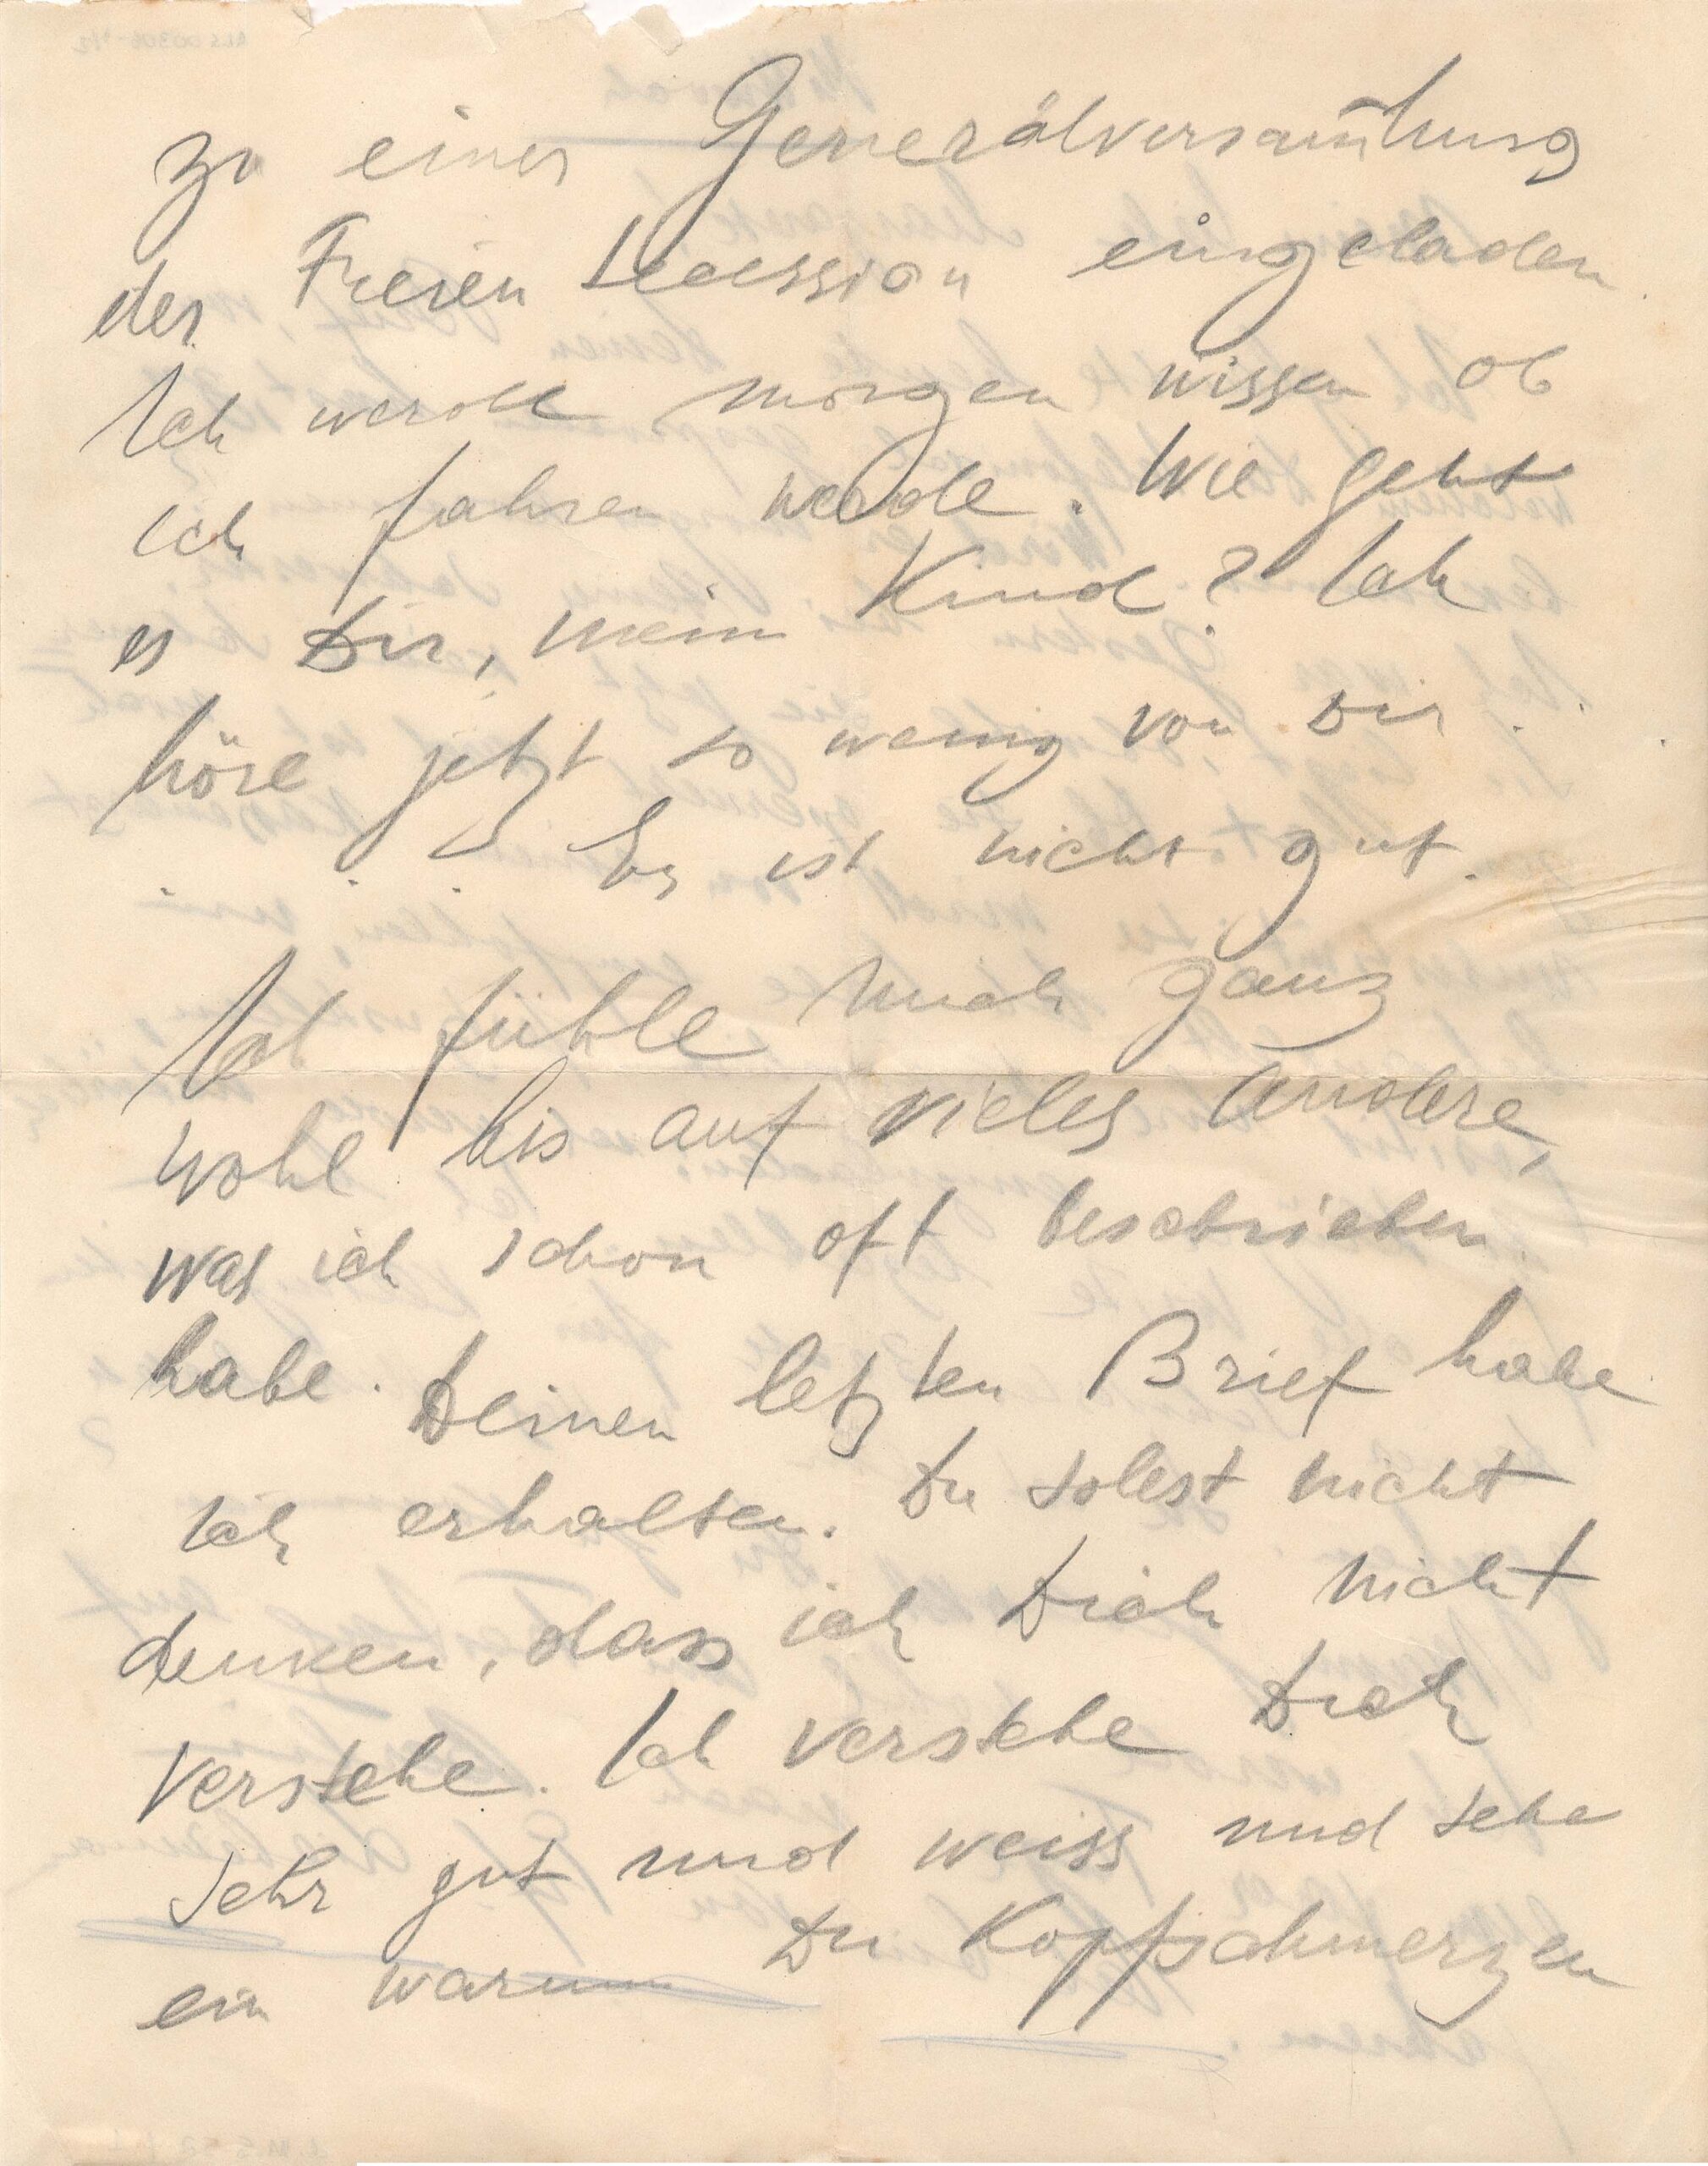 zu einer Generalversam̅lung
der Freien Secession eingeladen
Ich werde morgen wissen ob
ich fahren werde. Wie geht
es Dir, mein Kind? Ich
höre jetzt so wenig von Dir.
. . . Es ist nicht gut.
Ich fühle mich ganz
wohl bis auf vieles Andere,
was ich schon oft beschrieben
habe. Deinen letzten Brief habe
ich erhalten. Du sollst nicht
denken, dass ich Dich nicht
verstehe. Ich verstehe Dich
sehr gut und weiss und sehe
ein warum Du Kopfschmerzen